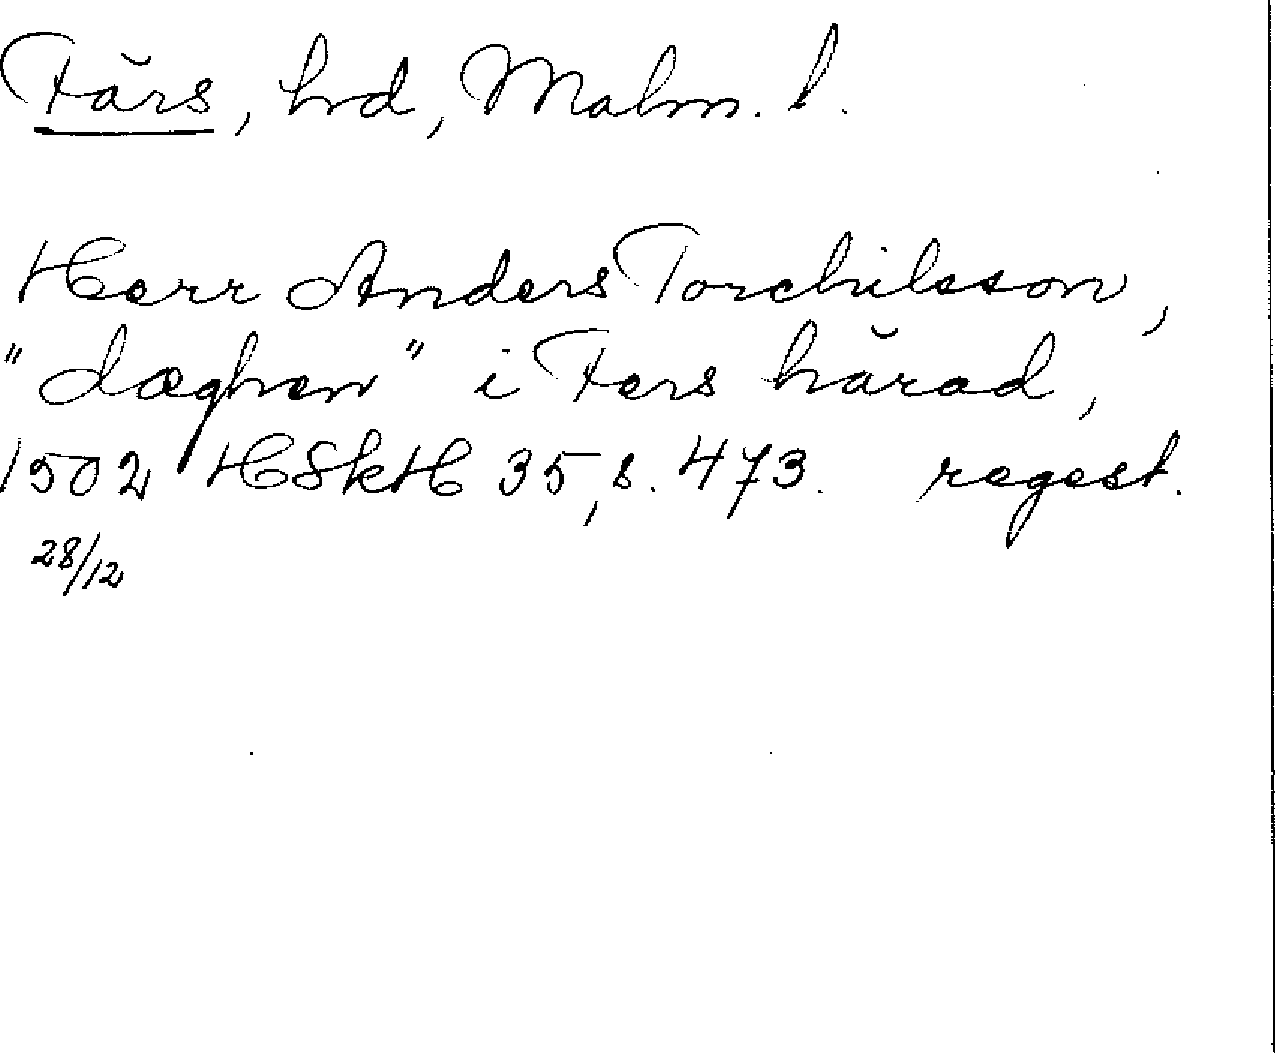 Färs, hrd, Malm. l.
Herr Anders Torchilsson,
"dæghen" i Fers härad,
1502 HSkH 35, s. 473. regest.
28/12